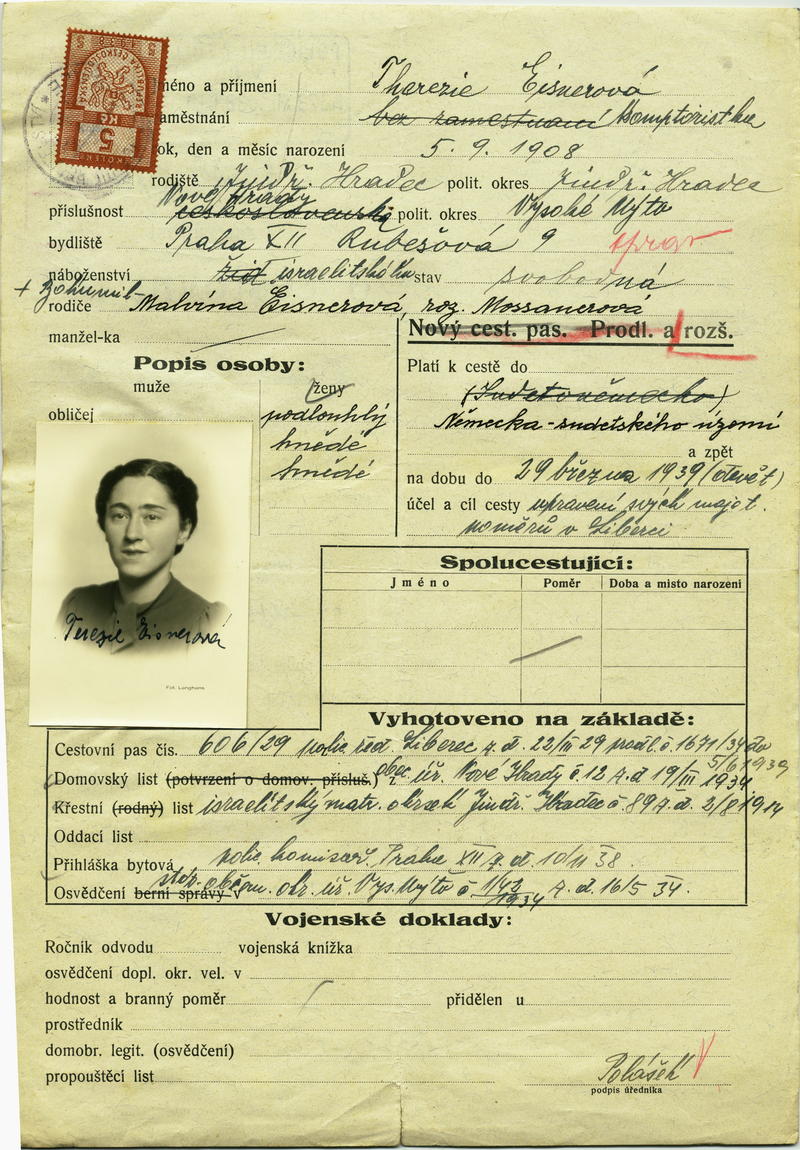 KOLEK
5
Kč
REPUBLIKA ČESKOSLOVENSKÁ
méno a příjmení Therezie Eisnerová
aměstnání bez zaměstnání Komptoristka
ok, den a měsíc narození 5. 9. 1908
rodiště Jindř. Hradec polit. okres Jindř. Hradec
Nové Hrady
příslušnost československá polit. okres Vysoké Mýto
bydliště Praha XII Rubešová 9
náboženství žid israelitského stav svobodná
+ Bohumil
rodiče Malvina Eisnerová, roz. Mossanerová
manžel-ka
Nový cest. pas. Prodl. a rozš.
Popis osoby:
muže ženy
obličej podlouhlý
hnědé
hnědé
Platí k cestě do
(Sudetoněmecko)
Německa-sudetského území
a zpět
na dobu do 29 března 1939 (devět)
účel a cíl cesty upravení svých majet.
poměrů v Liberci
Terezie Eisnerová
Fot. Langhans
Spolucestující:
Jméno Poměr Doba a místo narození
Vyhotoveno na základě:
Cestovní pas čís. 606/29 polic. řed. Liberec z. d. 22/III 29 prodl. č 1671/34 do
5/6 1939
Domovský list (potvrzení o domov. přísluš.) z obec. úř. Nové Hrady č 12 z. d. 19/III 1934
Křestní (rodný) list israelitský matr. okrsek Jindř. Hradec č 89 z. d. 2/8 1914
Oddací list
Přihláška bytová polic. komisař. Praha XII z. d. 10/11 38.
Osvědčení berní správy v stát. občan. okr. úř. Vys. Mýto č 1/42/1934 z. d. 16/5 34.
Vojenské doklady:
Ročník odvodu vojenská knížka
osvědčení dopl. okr. vel. v
hodnost a branný poměr přidělen u
prostředník
domobr. legit. (osvědčení)
propouštěcí list Polášek
podpis úředníka